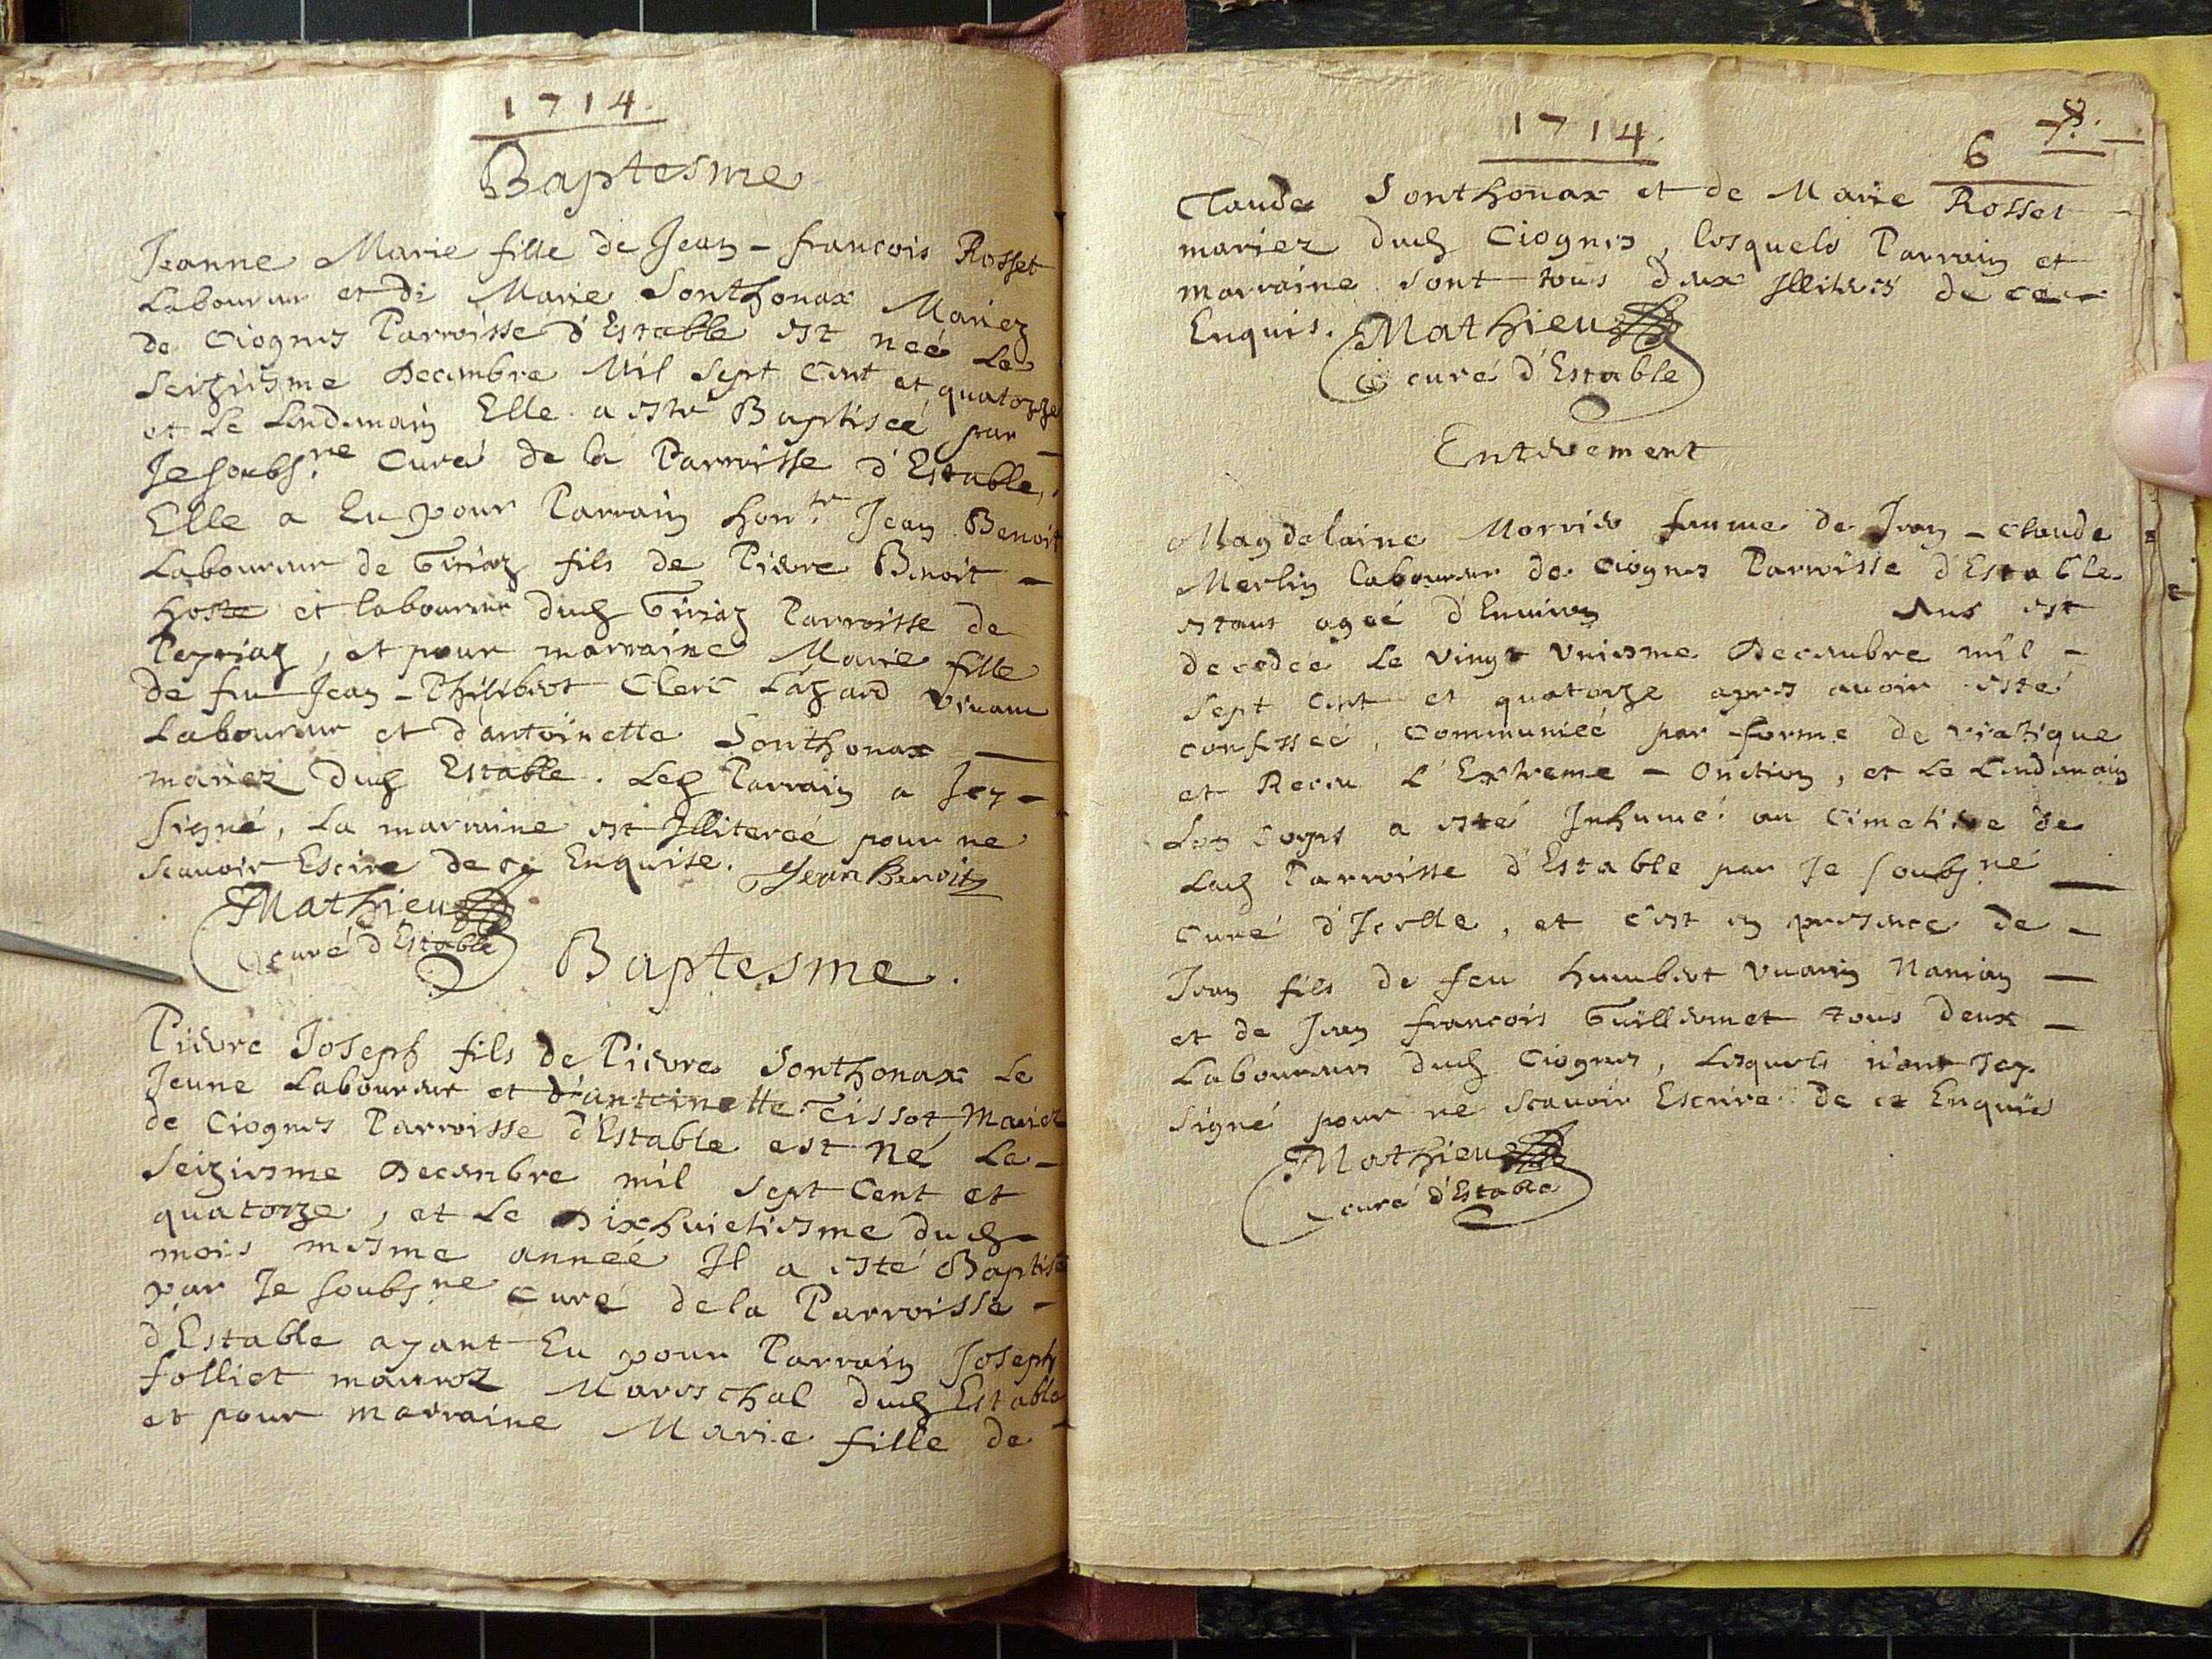 1714.
Baptesme
Jeanne Marie fille de Jean-francois Rosset
Laboureur et de Marie Sonthonax Mariez
de Ciognes Parroisse d'Estable est neé Le
Seiziesme Decembre Mil Sept Cent et quatorze
et Le Lendemain Elle a esté Baptiseé par -
Je soubs.né Curé de la Parroisse d'Estable,
Elle a Eu pour Parrain hon.te Jean Benoit
Laboureur de Giriaz fils de Pierre Benoit -
hoste et laboureur dud Giriaz Parroisse de
Peyriaz, et pour marraine Marie fille
de feu Jean-Philibert Clerc Lazard vivant
Laboureur et d'antoinette Sonthonax —
mariez dud Estable. Led Parrain a Icy -
signé, La marraine est Illitereé pour ne
scauoir Escire de ce Enquise. Jean Benoit
Mathieu
curé d'Estable
Baptesme.
Pierre Joseph fils de Pierre Sonthonax Le
Jeune Laboureur et d'antoinette Tissot, Mariez
de Ciognes Parroisse d'Estable est Né Le -
Seiziesme Decembre mil Sept Cent et
quatorze, et Le Dixhuietiesme dud -
mois mesme anneé Il a esté Baptisé
par Je soubs.né Curé de la Parroisse -
d'Estable ayant Eu pour Parrain Joseph
folliet Mareschal dud Estable
et pour marraine Marie fille de -
1714.
6 7.
Claude Sonthonax et de Marie Rosset -
mariez dud Ciognes, lesquels Parrain et
marraine sont tous deux Illiterés de ce -
Enquis. Mathieu
curé d'Estable
Enterement
Magdelaine Morrier femme de Jean-Claude
Merlin laboureur de Ciognes Parroisse d'Estable
estant ageé d'Enuiron ans est
decedeé Le vingt vniesme Decembre mil -
Sept Cent et quatorze apres auoir esté
confesseé, Communieé par forme de viatique
et Receu L'Extreme-Onction, et Le Lendemain
Son Corps a esté Inhumé au Cimetiere de
Lad Parroisse d'Estable par Je soubs.né —
Curé d'Icelle, et c'est en presence de -
Jean fils de feu humbert Vuarin Namian —
et de Jean francois Guillermet tous deux -
Laboureurs dud Ciognes, Lesquels n'ont Icy
signé pour ne scauoir Escrire de ce Enquis
Mathieu
curé d'Estable